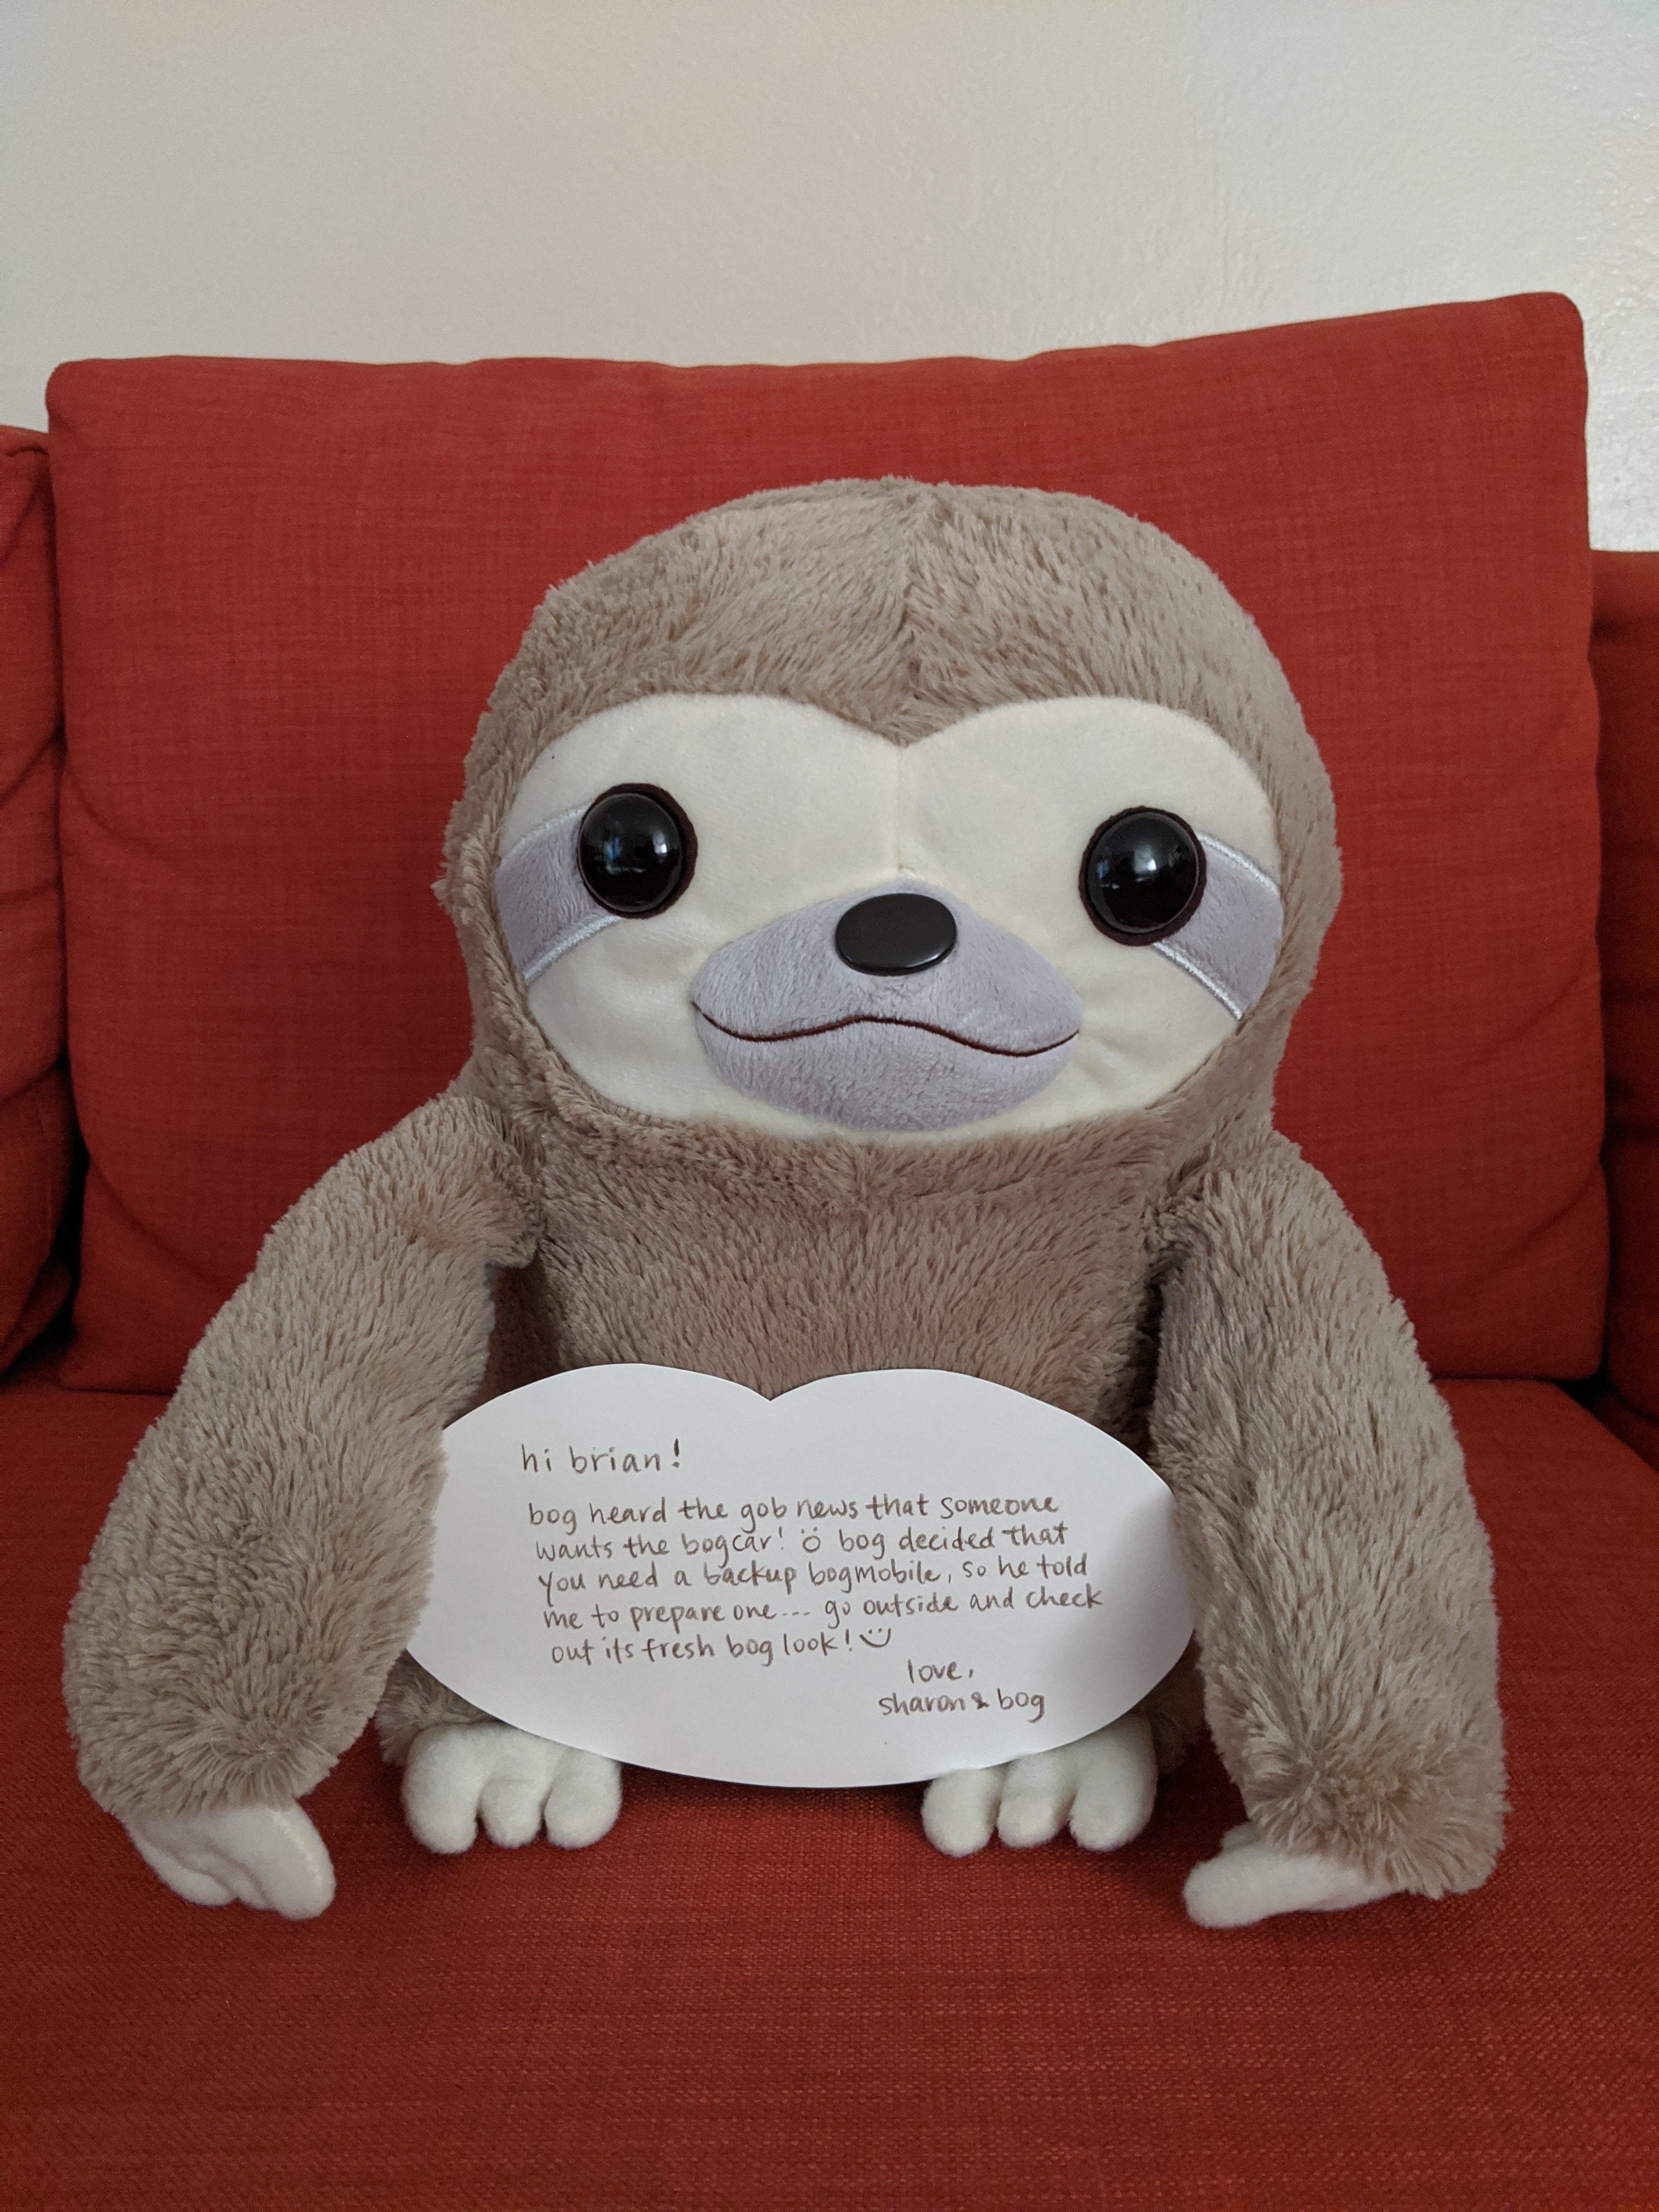 hi brian!
bog heard the gob news that someone
wants the bogcar! bog decided that
you need a backup bogmobile, so he told
me to prepare one... go outside and check
out its fresh bog look!
love,
sharon & bog